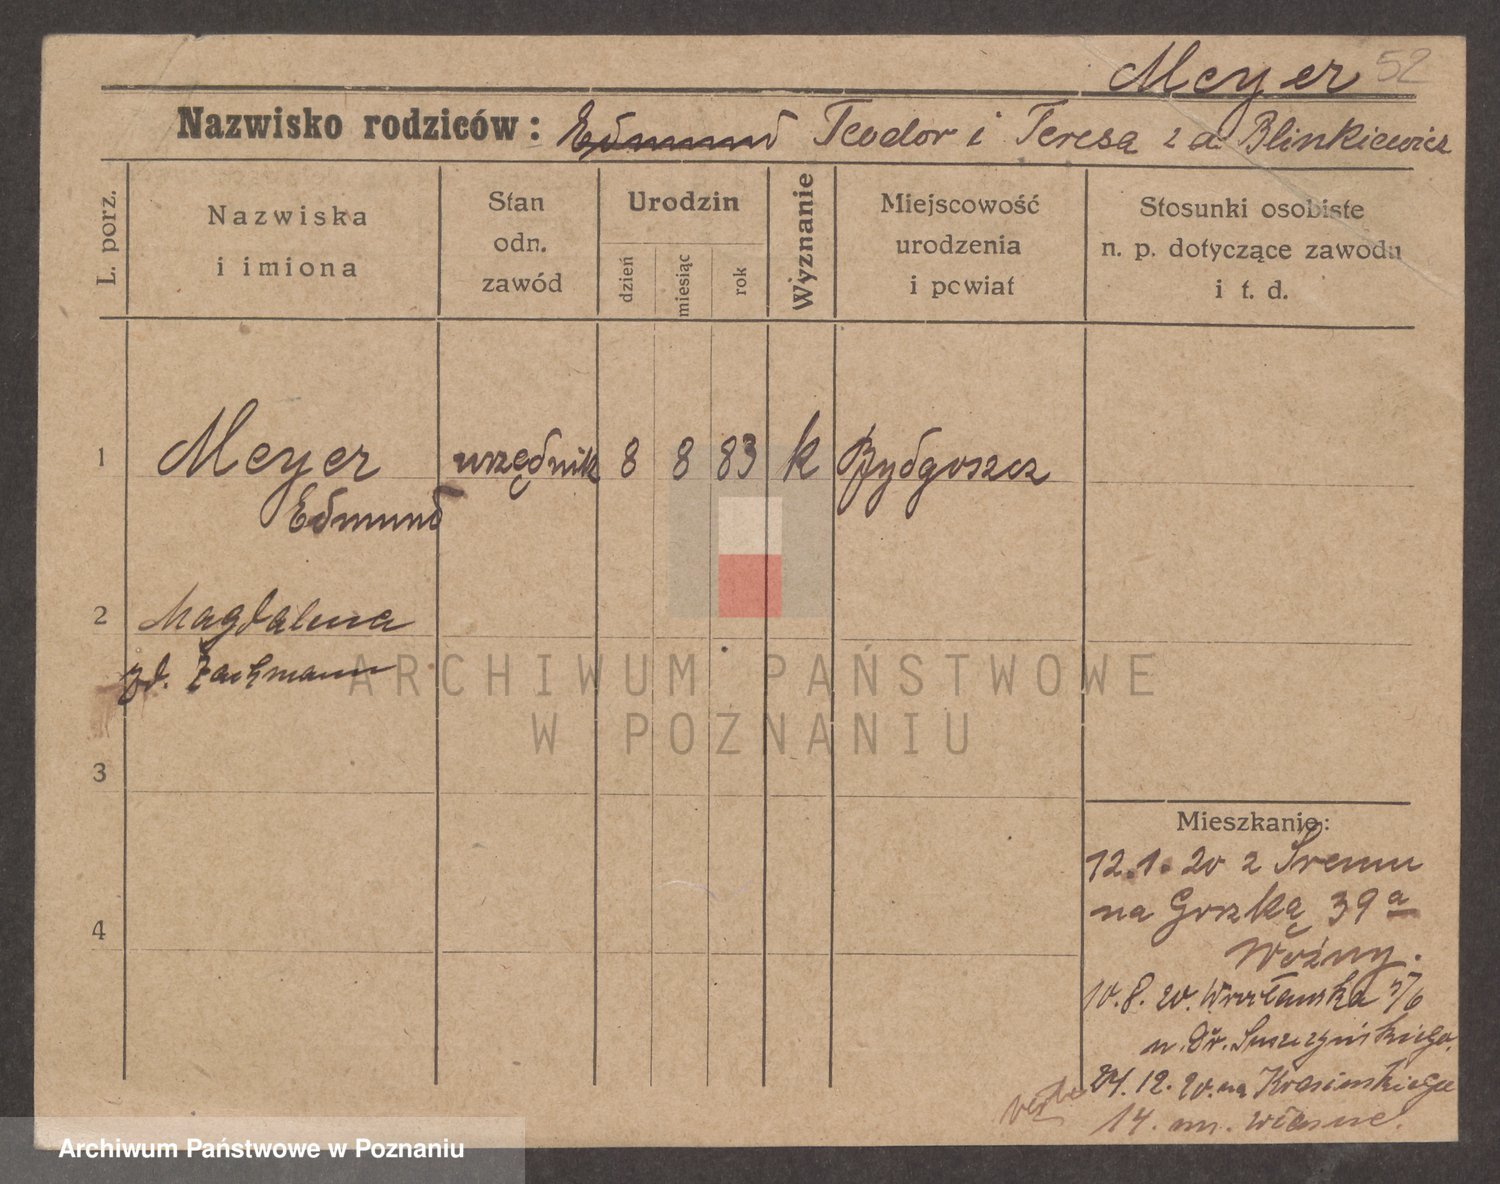 Meyer 52
Nazwisko rodziców: Edmund Teodor i Teresa z d. Blinkiewicz
L. porz.
Nazwiska
i imiona
Stan
odn.
zawód
Urodzin
dzień
miesiąc
rok
Wyznanie
Miejscowość
urodzenia
i powiat
Stosunki osobiste
n. p. dotyczące zawodu
i t. d.
1 Meyer urzędnik 8 8 83 k Bydgoszcz
Edmund
2 Magdalena
zd. Zachmann
3
4
Mieszkanie:
12.1.20 z Śremu
na Górską 39a
Woźny.
10.8.20. Wrocławska
u Dr. Suszczyńskiego.
24.12.20. na Krasińskiego
14. m. własne.
ARCHIWUM PAŃSTWOWE
W POZNANIU
Archiwum Państwowe w Poznaniu